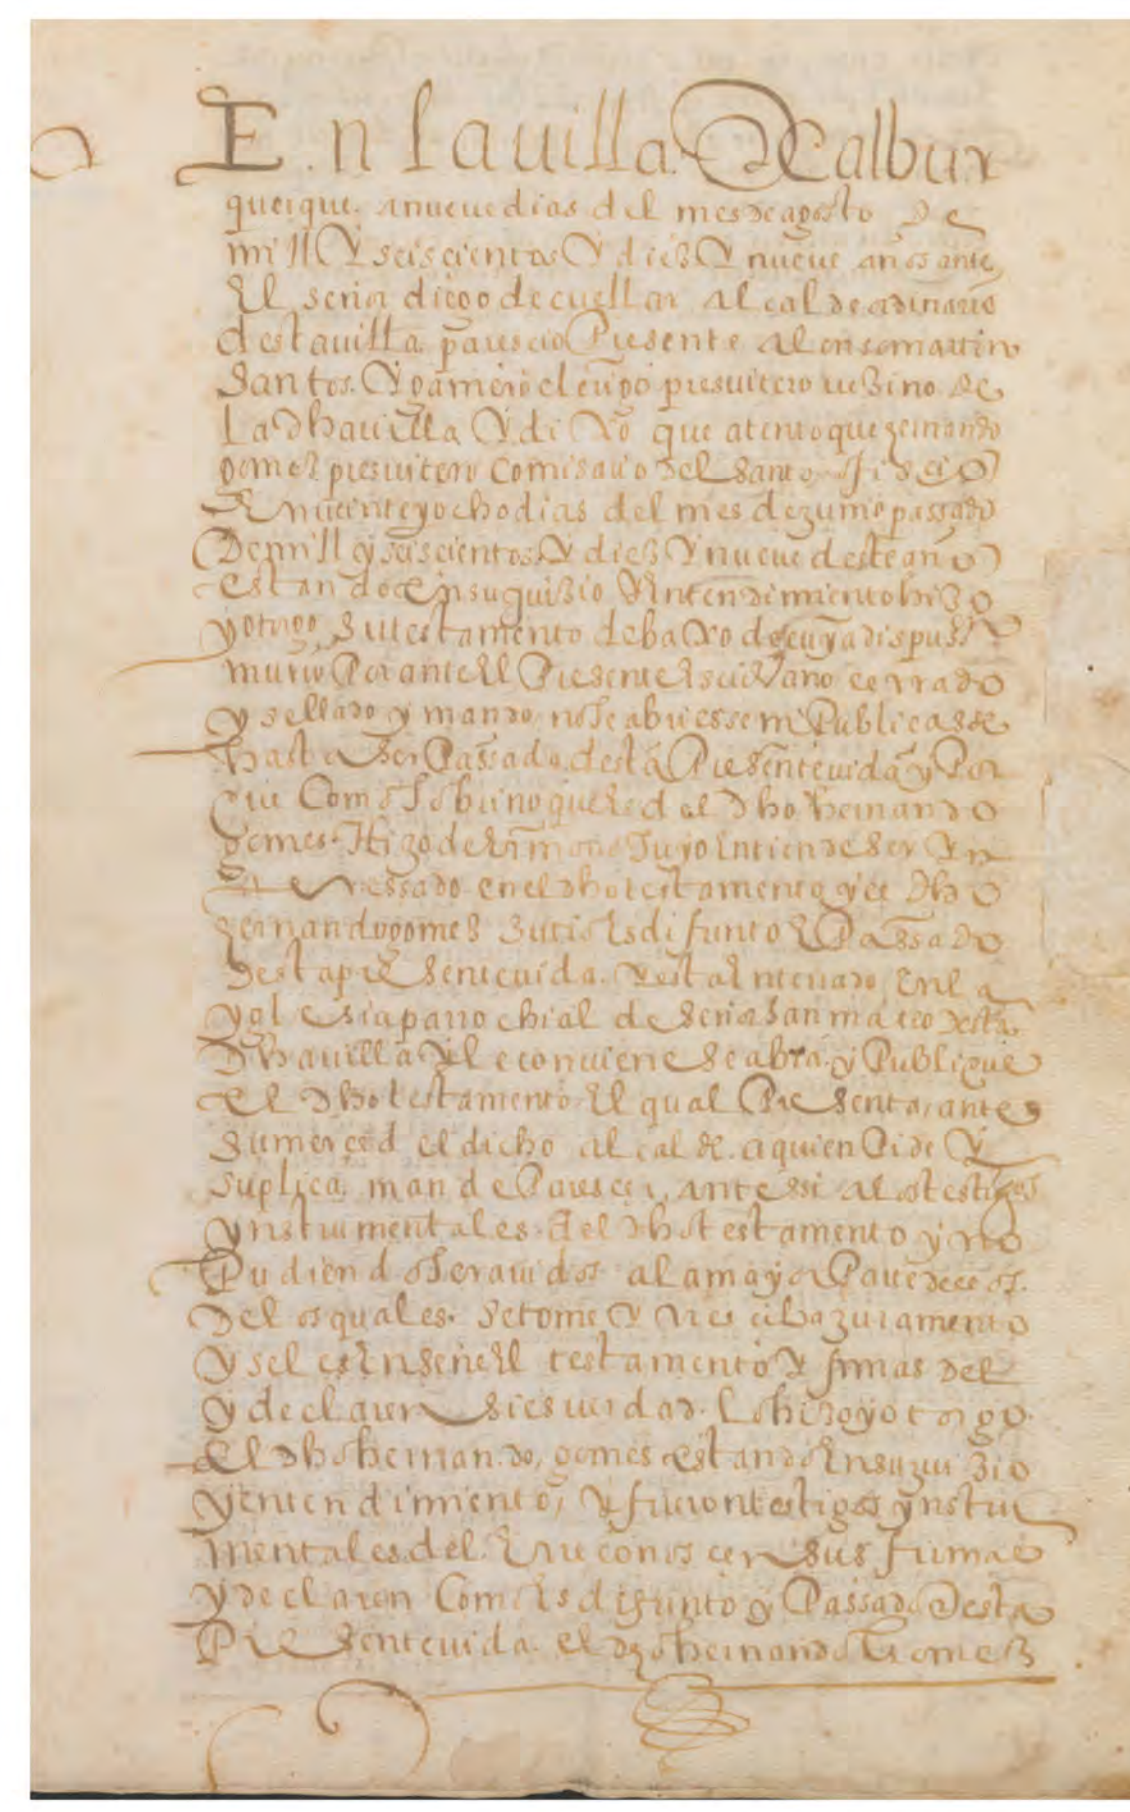 En la uilla de albur
querque. a nueue dias del mes de agosto de
mill Y seiscientos Y diez Y nueue años ante
El señor diego de cuellar alcalde ordinario
desta uilla parescio Presente alonso martin
Santos. Y Romero clerigo presuitero uezino de
La dha uilla Y dixo que atento que hernando
gomez presuitero comisario del santo oficio
En ueinte y ocho dias del mes de junio passado
De mill y seiscientos Y diez Y nueue deste año
estando en su quizio Entendimiento hizo
y otorgo su testamento debaxo de cuya dispusion
murio Por ante El Presente Escriuano cerrado
y sellado y mando no se abriesse ni Publicasse
hasta ser Passado desta Presente uida y Por
que Como sobrino que es del dho hernando
gomes. Hizo de hermano suyo entiende ser Yn
teressado en el dho testamento y el Dho
hernando gomez Surio Es difunto E Passado
desta pressente uida. Y esta Enterrado En la
yglesia parrochial de señor san mateo desta
Dha uilla Y le conuiene se abra. y Publique
el dho testamento El qual Presenta, ante
su merced el dicho alcalde. a quien Pide Y
suplica mande Parescer, ante ssi a los testigos
ynstrumentales. del dho testamento y no
Pudiendo ser auidos a la mayor Parte de ellos.
Del os quales. se tome Y rreciba juramento
y se les Enseñe El testamento Y firmas del
y declaren si es uerdad. Lo hizo y otorgo.
el dho hernando, gomes estando En su juizio
y entendimiento, Y fueron testigos ynstru
mentales del. E rreconoscen sus firmas
y declaren Como Es difunto y Passado Desta
Presente uida. el dho hernando Gomez